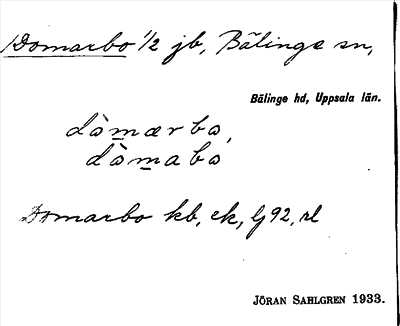 Domarbo 1/2 jb, Bälinge sn,
Bälinge hd, Uppsala län.
dòmærbo,
dòmabo
Domarbo kb, ek, lj 92, rl
JÖRAN SAHLGREN 1933.